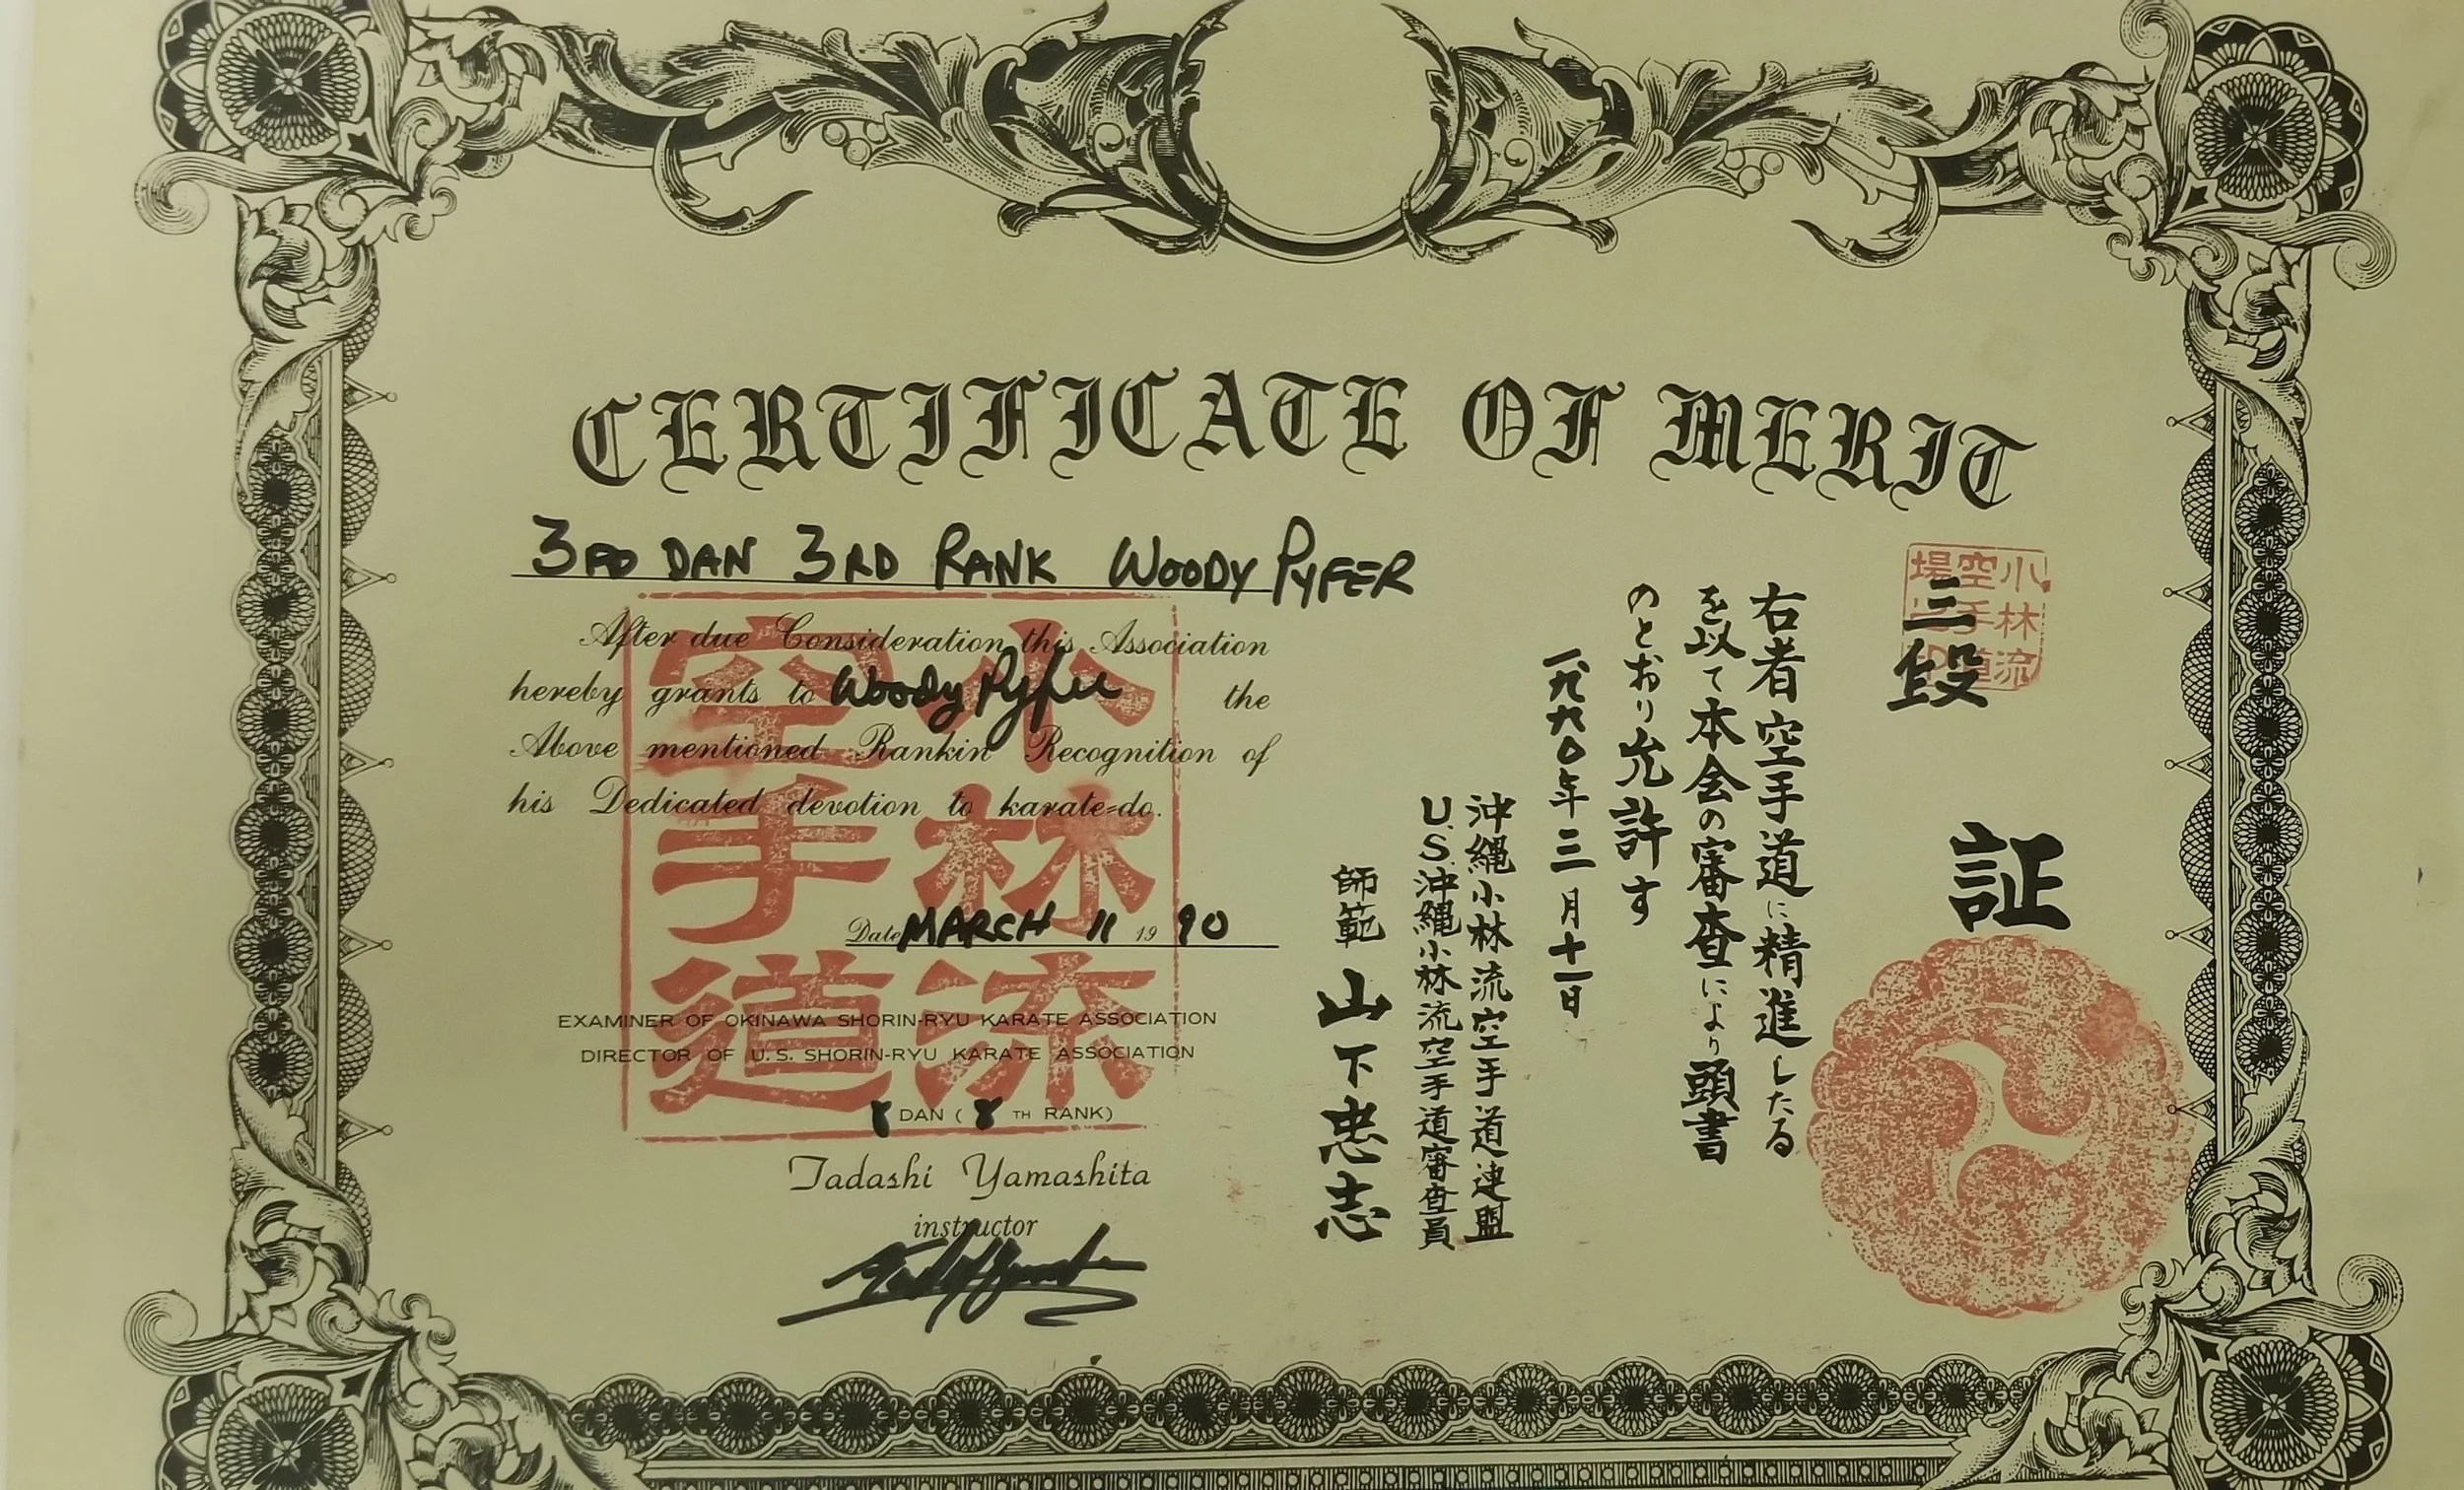 CERTIFICATE OF MERIT
3RD DAN 3RD RANK WOODY PYFER
After due Consideration this Association
hereby grants to Woody Pyfer the
Above mentioned Rankin Recognition of
his Dedicated devotion to karate=do.
Date MARCH 11 19 90
EXAMINER OF OKINAWA SHORIN-RYU KARATE ASSOCIATION
DIRECTOR OF U.S. SHORIN-RYU KARATE ASSOCIATION
8 DAN ( 8 TH RANK)
Tadashi Yamashita
instructor
小林流
空手道
証
三段
小林流
空手道
右者空手道に精進したる
を以て本会の審査により頭書
のとおり允許す
一九九〇年三月十一日
沖縄小林流空手道連盟
U.S.沖縄小林流空手道審査員
師範 山下忠志